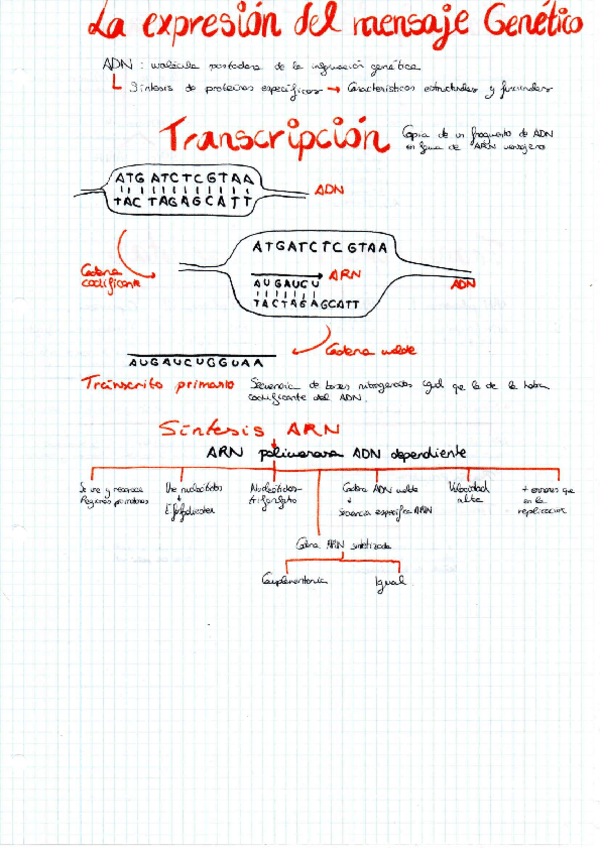 La expresión del mensaje Genético
ADN : molécula portadora de la información genética
Síntesis de proteínas específicas → Características estructurales y funcionales
Transcripción
Copia de un fragmento de ADN
en forma de ARN mensajero
ATG ATCTCGTAA
TAC TAGAGCATT
ADN
Cadena
codificante
ATGATCTCGTAA
ARN
AUGAUCU
TACTAGAGCATT
ADN
Cadena molde
AUGAUCUCGUAA
Tránscrito primario
Secuencia de bases nitrogenadas igual que la de la hebra
codificante del ADN.
Síntesis ARN
ARN polimerasa ADN dependiente
Se une y reconoce
Regiones promotoras
Une nucleótidos
E. fosfodiester
Nucleótidos-
trifosfato
Cadena ADN molde
↓
secuencia específica ARN
Velocidad
alta
+ errores que
en la
replicación
Cadena ARN sintetizada
Complementaria
Igual